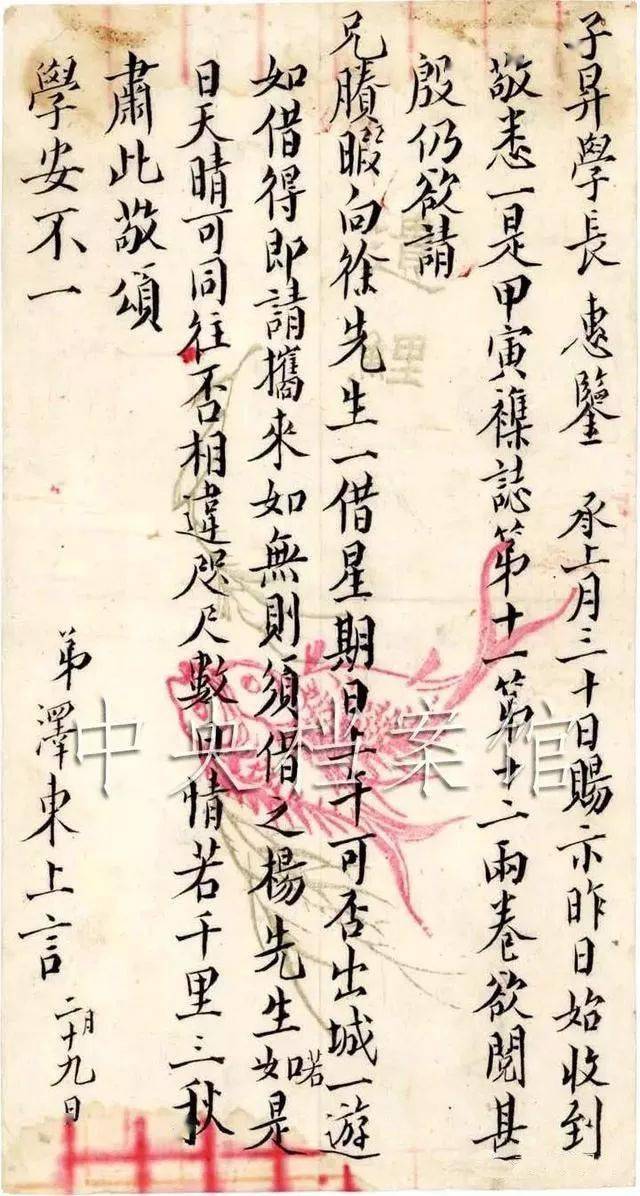 子昇學長 惠鑒 承上月三十日賜示昨日始收到
敬悉一是甲寅襍誌第十一第十二兩卷欲閱甚
殷仍欲請
兄賸暇向徐先生一借星期日上午可否出城一遊
如借得即請攜來如無則須借之楊先生喏如是
日天晴可同往否相違咫尺數日情若千里三秋
肅此敬頌
學安不一
弟澤東上言 二月十九日
中央档案馆